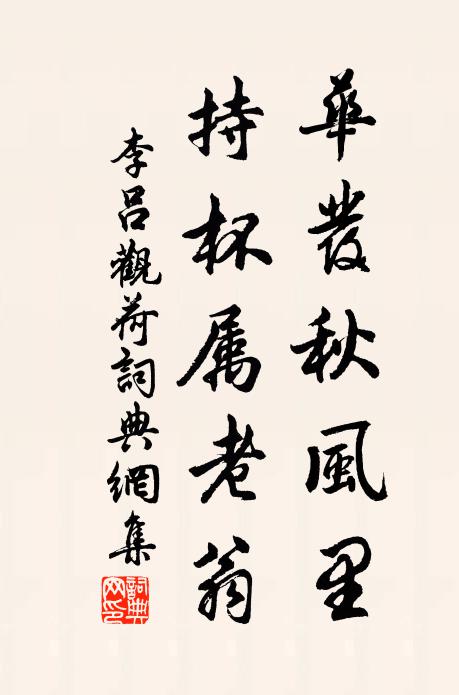 華發秋風里
持杯属老翁
李吕觀荷詞典網集
詞典網印